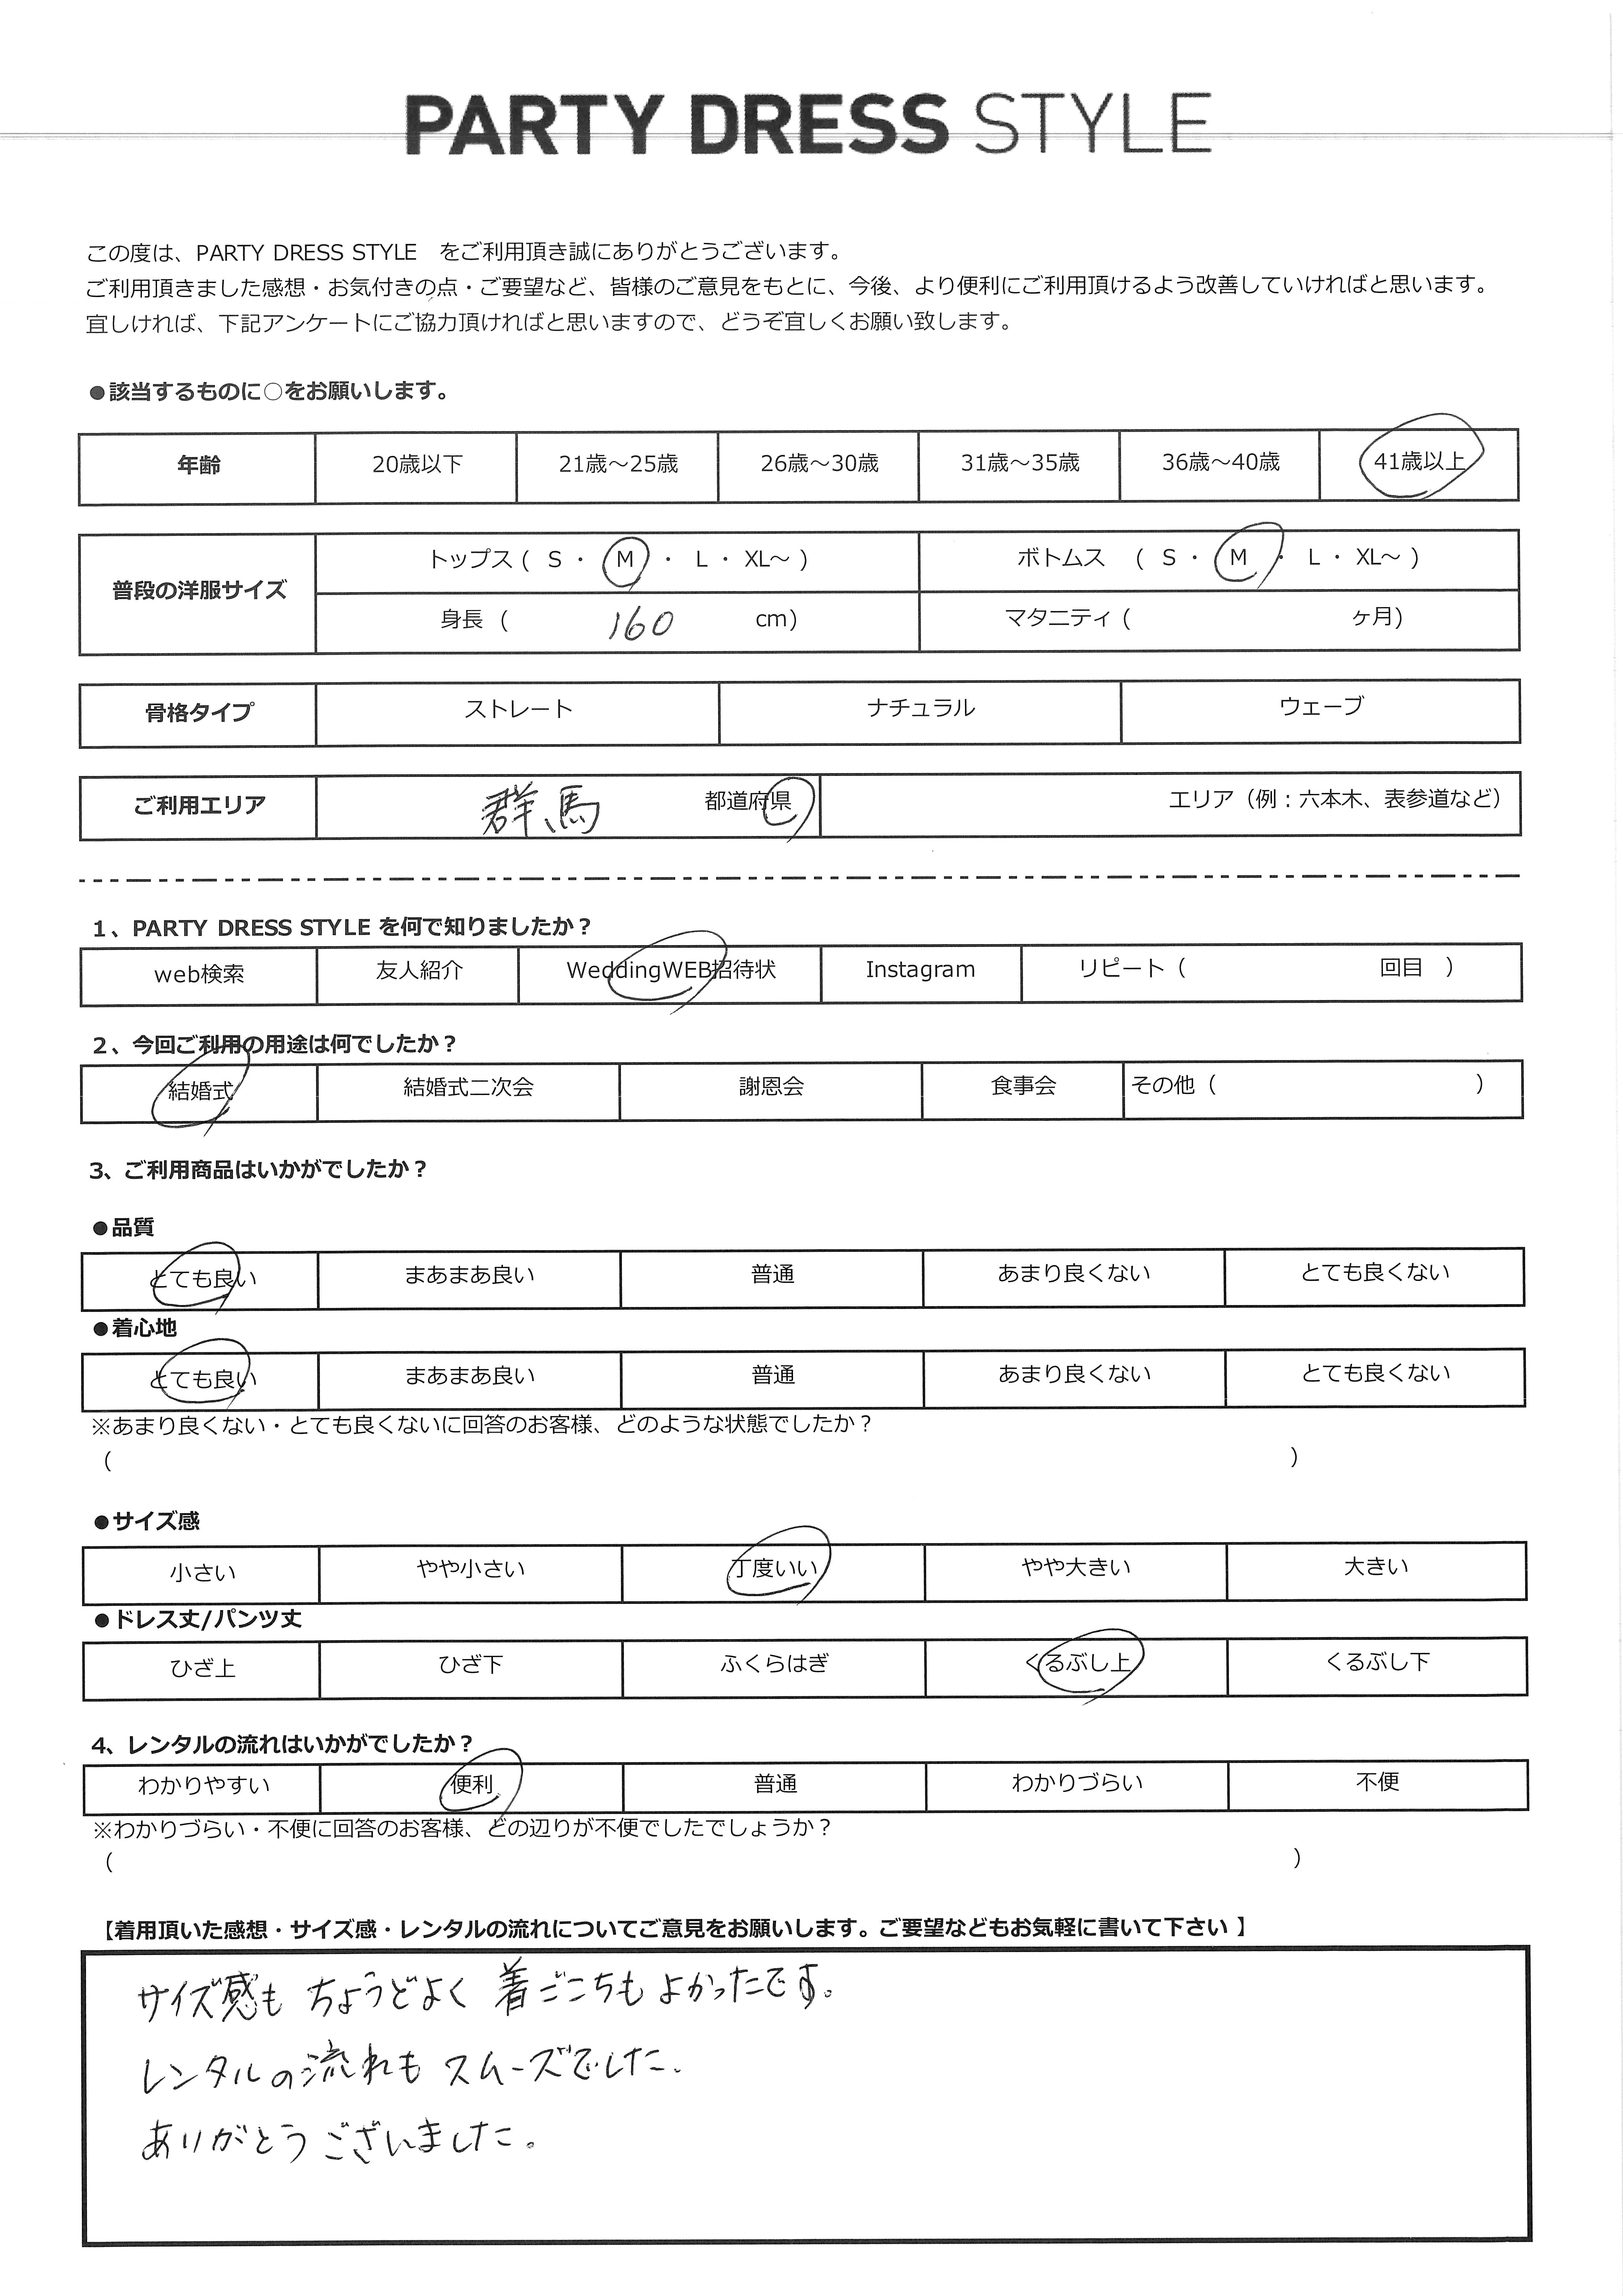 PARTY DRESS STYLE
この度は、PARTY DRESS STYLE をご利用頂き誠にありがとうございます。
ご利用頂きました感想・お気付きの点・ご要望など、皆様のご意見をもとに、今後、より便利にご利用頂けるよう改善していければと思います。
宜しければ、下記アンケートにご協力頂ければと思いますので、どうぞ宜しくお願い致します。
●該当するものに○をお願いします。
年齢 20歳以下 21歳～25歳 26歳～30歳 31歳～35歳 36歳～40歳 41歳以上
普段の洋服サイズ トップス ( S ・ M ・ L ・ XL～ ) ボトムス ( S ・ M ・ L ・ XL～ )
身長 ( 160 cm) マタニティ ( ヶ月)
骨格タイプ ストレート ナチュラル ウェーブ
ご利用エリア 群馬 都道府県 エリア（例：六本木、表参道など）
1、PARTY DRESS STYLE を何で知りましたか？
web検索 友人紹介 WeddingWEB招待状 Instagram リピート（ 回目 ）
2、今回ご利用の用途は何でしたか？
結婚式 結婚式二次会 謝恩会 食事会 その他（ ）
3、ご利用商品はいかがでしたか？
●品質
とても良い まあまあ良い 普通 あまり良くない とても良くない
●着心地
とても良い まあまあ良い 普通 あまり良くない とても良くない
※あまり良くない・とても良くないに回答のお客様、どのような状態でしたか？
（ ）
●サイズ感
小さい やや小さい 丁度いい やや大きい 大きい
●ドレス丈/パンツ丈
ひざ上 ひざ下 ふくらはぎ くるぶし上 くるぶし下
4、レンタルの流れはいかがでしたか？
わかりやすい 便利 普通 わかりづらい 不便
※わかりづらい・不便に回答のお客様、どの辺りが不便でしたでしょうか？
（ ）
【着用頂いた感想・サイズ感・レンタルの流れについてご意見をお願いします。ご要望などもお気軽に書いて下さい 】
サイズ感も ちょうどよく 着ごこちも よかったです。
レンタルの流れも スムーズでした。
ありがとうございました。